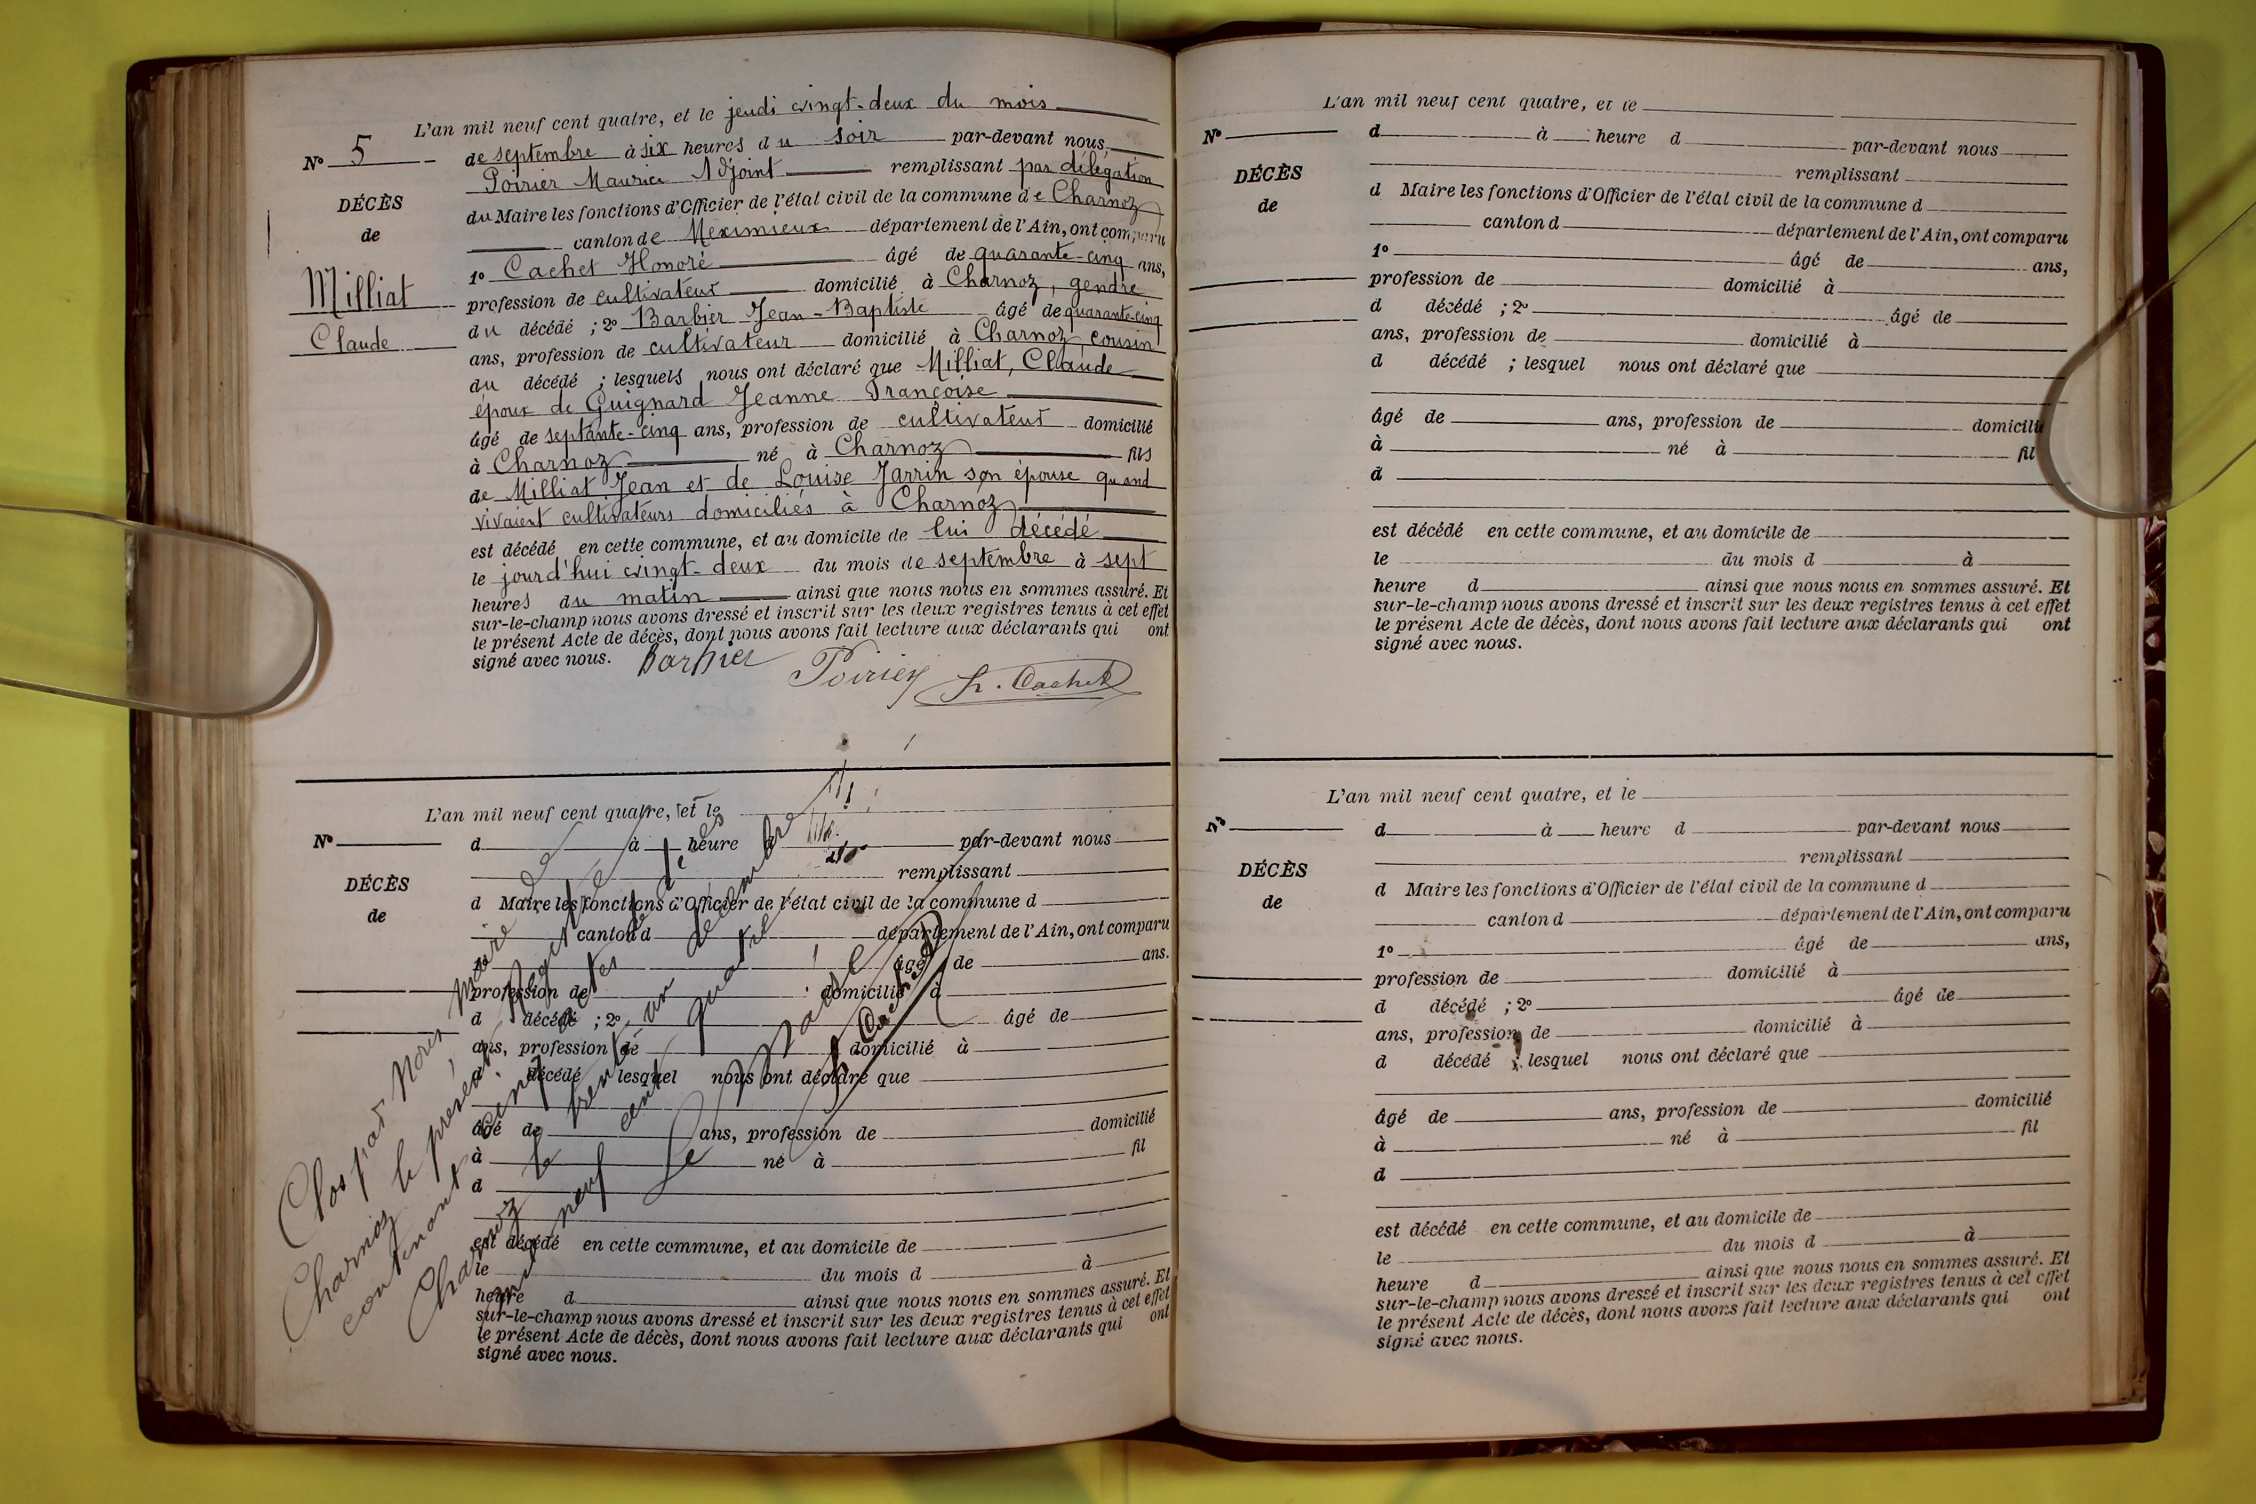 L'an mil neuf cent quatre, et le jeudi vingt-deux du mois
N° 5
de septembre à six heures du soir par-devant nous,
Poirier Maurice Adjoint remplissant par délégation
DÉCÈS
du Maire les fonctions d'Officier de l'état civil de la commune de Charnoz
de
canton de Meximieux département de l'Ain, ont comparu
1° Cachet Honoré âgé de quarante-cinq ans,
Milliat
profession de cultivateur domicilié à Charnoz, gendre
du décédé ; 2° Barbier Jean-Baptiste âgé de quarante-cinq
Claude
ans, profession de cultivateur domicilié à Charnoz cousin
du décédé ; lesquels nous ont déclaré que Milliat, Claude
époux de Guignard Jeanne Françoise
âgé de septante-cinq ans, profession de cultivateur domicilié
à Charnoz né à Charnoz fils
de Milliat Jean et de Louise Jarrin son épouse quand
vivaient cultivateurs domiciliés à Charnoz
est décédé en cette commune, et au domicile de lui décédé
le jourd'hui vingt-deux du mois de septembre à sept
heures du matin ainsi que nous nous en sommes assuré. Et
sur-le-champ nous avons dressé et inscrit sur les deux registres tenus à cet effet
le présent Acte de décès, dont nous avons fait lecture aux déclarants qui ont
signé avec nous. Barbier Poirier h. Cachet
L'an mil neuf cent quatre, et le
N°
d à heure d par-devant nous
remplissant
DÉCÈS
d Maire les fonctions d'Officier de l'état civil de la commune d
de
canton d département de l'Ain, ont comparu
1° âgé de ans.
profession de domicilié à
d décédé ; 2° âgé de
ans, profession de domicilié à
d décédé ; lesquel nous ont déclaré que
âgé de ans, profession de domicilié
à né à fil
d
est décédé en cette commune, et au domicile de
le du mois d à
heure d ainsi que nous nous en sommes assuré. Et
sur-le-champ nous avons dressé et inscrit sur les deux registres tenus à cet effet
le présent Acte de décès, dont nous avons fait lecture aux déclarants qui ont
signé avec nous.
Clos par Nous Maire de
Charnoz le présent Registre
contenant cinq actes de décès
Charnoz le trente un décembre
mil neuf cent quatre
Le Maire
h Cachet
L'an mil neuf cent quatre, et le
N°
d à heure d par-devant nous
remplissant
DÉCÈS
d Maire les fonctions d'Officier de l'état civil de la commune d
de
canton d département de l'Ain, ont comparu
1° âgé de ans,
profession de domicilié à
d décédé ; 2° âgé de
ans, profession de domicilié à
d décédé ; lesquel nous ont déclaré que
âgé de ans, profession de domicilié
à né à fil
d
est décédé en cette commune, et au domicile de
le du mois d à
heure d ainsi que nous nous en sommes assuré. Et
sur-le-champ nous avons dressé et inscrit sur les deux registres tenus à cet effet
le présent Acte de décès, dont nous avons fait lecture aux déclarants qui ont
signé avec nous.
L'an mil neuf cent quatre, et le
N°
d à heure d par-devant nous
remplissant
DÉCÈS
d Maire les fonctions d'Officier de l'état civil de la commune d
de
canton d département de l'Ain, ont comparu
1° âgé de ans,
profession de domicilié à
d décédé ; 2° âgé de
ans, profession de domicilié à
d décédé ; lesquel nous ont déclaré que
âgé de ans, profession de domicilié
à né à fil
d
est décédé en cette commune, et au domicile de
le du mois d à
heure d ainsi que nous nous en sommes assuré. Et
sur-le-champ nous avons dressé et inscrit sur les deux registres tenus à cet effet
le présent Acte de décès, dont nous avons fait lecture aux déclarants qui ont
signé avec nous.